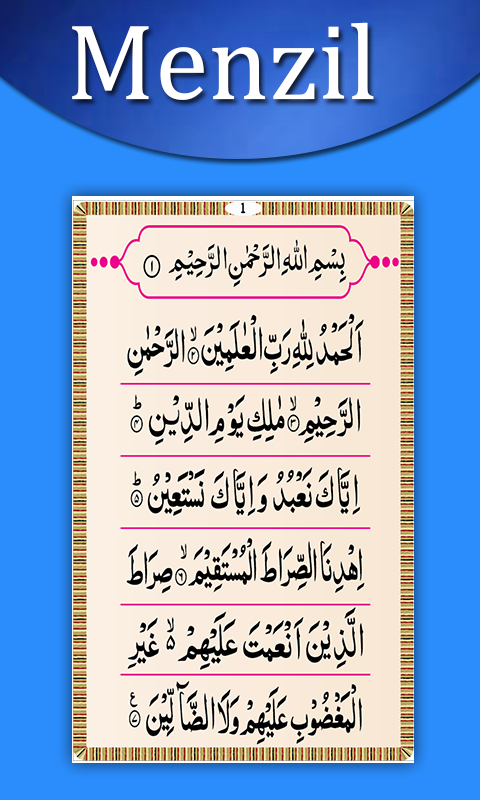 Menzil
1
بِسْمِ اللهِ الرَّحْمٰنِ الرَّحِيْمِ ۝١
اَلْحَمْدُ لِلّٰهِ رَبِّ الْعٰلَمِيْنَ ۙ۝٢ الرَّحْمٰنِ
الرَّحِيْمِ ۙ۝٣ مٰلِكِ يَوْمِ الدِّيْنِ ؕ۝٤
اِيَّاكَ نَعْبُدُ وَ اِيَّاكَ نَسْتَعِيْنُ ؕ۝٥
اِهْدِنَا الصِّرَاطَ الْمُسْتَقِيْمَ ۙ۝٦ صِرَاطَ
الَّذِيْنَ اَنْعَمْتَ عَلَيْهِمْ ۙ۵ غَيْرِ
الْمَغْضُوْبِ عَلَيْهِمْ وَلَا الضَّآلِّيْنَ ۝٧ ع